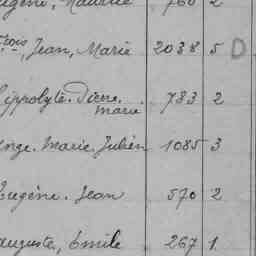 ugène, Maurice 760 2
çois, Jean, Marie 2038 5 D
ippolyte. Pierre. Marie 783 2
nge. Marie. Julien 1085 3
Eugène. Jean 570 2
Auguste, Emile 267 1